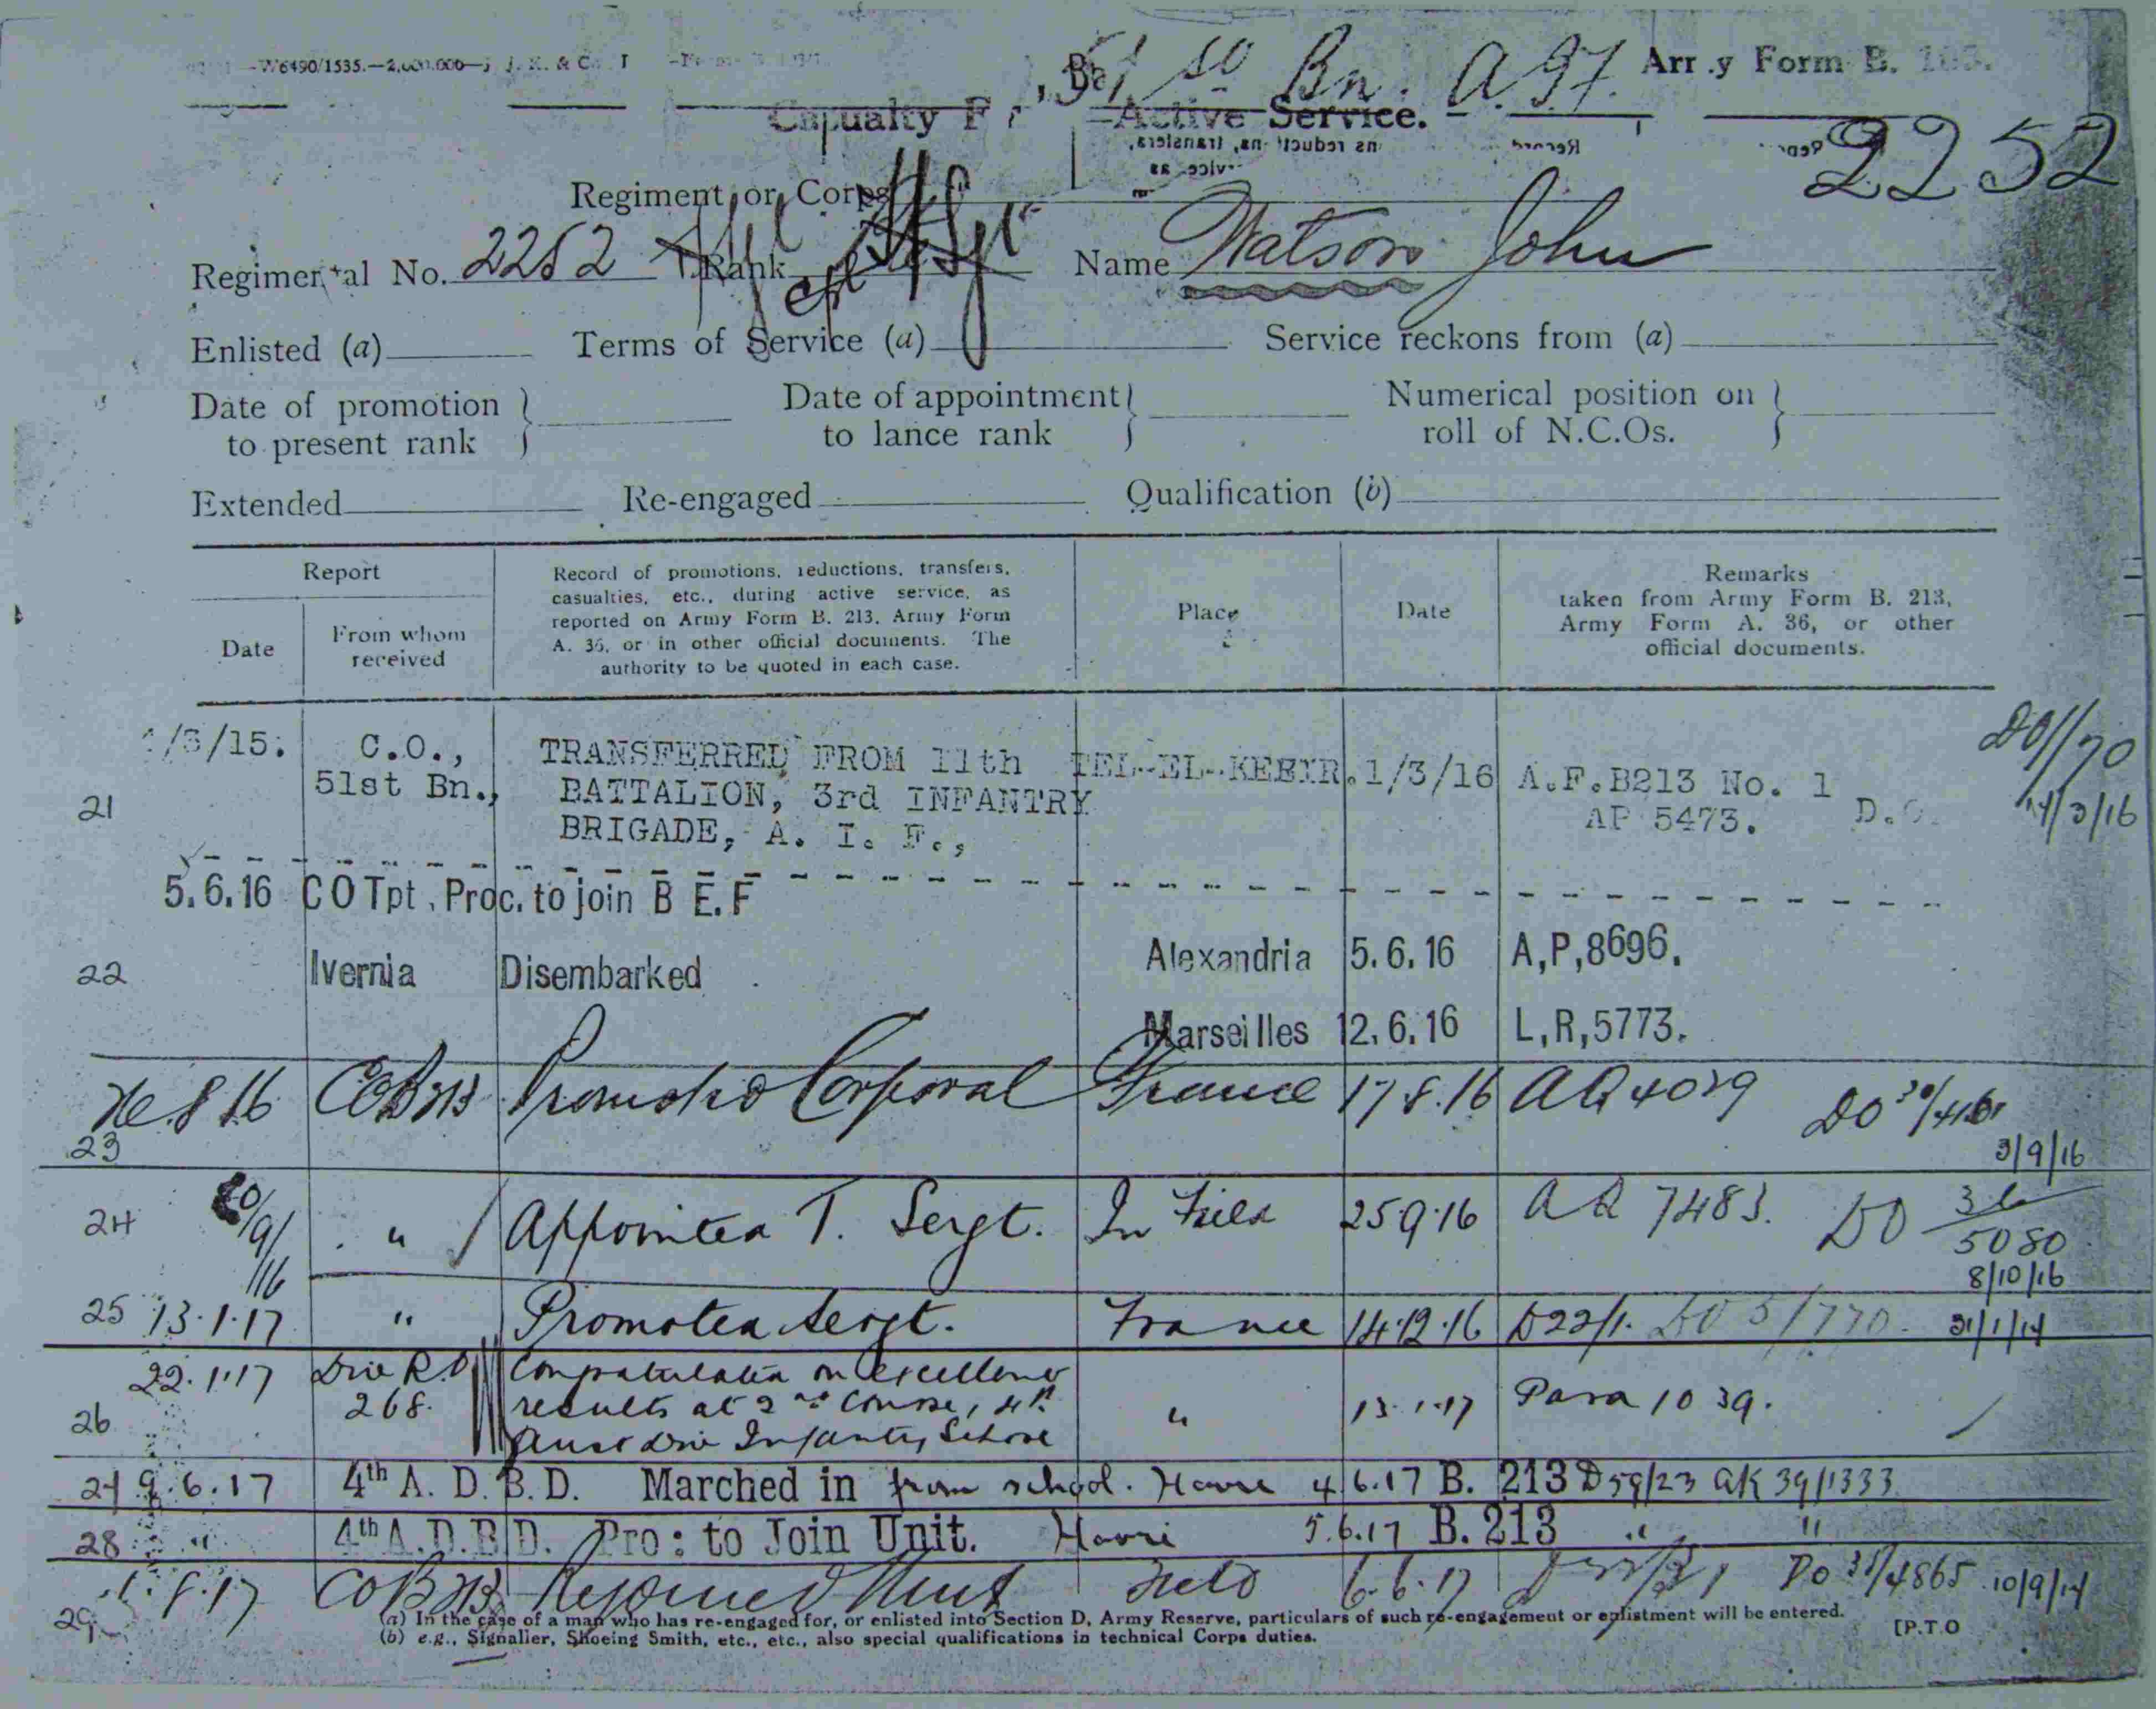 W6490/1535.—2,000,000— J. K. & C.
51st Bn. Army Form B. 103.
Casualty F Active Service.
2252
Regiment or Corps
Regimental No. 2252 Rank Cpl Name Watson John
Enlisted (a) Terms of Service (a) Service reckons from (a)
Date of promotion to present rank } Date of appointment to lance rank } Numerical position on roll of N.C.Os. }
Extended Re-engaged Qualification (b)
Report
Date
From whom received
Record of promotions, reductions, transfers,
casualties, etc., during active service, as
reported on Army Form B. 213, Army Form
A. 36, or in other official documents. The
authority to be quoted in each case.
Place
Date
Remarks
taken from Army Form B. 213,
Army Form A. 36, or other
official documents.
1/3/15. C.O., TRANSFERRED FROM 11th TEL-EL-KEBIR. 1/3/16 A.F.B213 No. 1
21 51st Bn., BATTALION, 3rd INFANTRY AP 5473. D.O.
BRIGADE, A. I. F.,
DO 1/70
14/3/16
5.6.16 C O Tpt, Proc. to join B E.F
Alexandria 5.6.16 A,P,8696.
22 Ivernia Disembarked
Marseilles 12.6.16 L,R,5773.
23 8 16 CO B213 Promoted Corporal France 17.8.16 DO 30/
3/9/16
24 /9/16 " Appointed T. Sergt. In Field 25.9.16 7483. DO 36/5080
8/10/16
25 13.1.17 " Promoted Sergt. France 14.12.16 D22/1. DO 5/770. 31/1/17
22.1.17 Div R.O Congratulated on excellent
26 268. results at 2nd Course, 4th " 13.1.17 Para 1039.
Aust Div Infantry School
27 9.6.17 4th A. D. B. D. Marched in from school. Havre 4.6.17 B. 213 D59/23 AK 39/1333
28 " 4th A. D. B. D. Pro: to Join Unit. Havre 5.6.17 B. 213 " "
29. 8.17 CO B213 Rejoined Unit Field 6.6.17 DO 31/4865 10/9/17
(a) In the case of a man who has re-engaged for, or enlisted into Section D, Army Reserve, particulars of such re-engagement or enlistment will be entered.
(b) e.g., Signaller, Shoeing Smith, etc., etc., also special qualifications in technical Corps duties.
[P.T.O